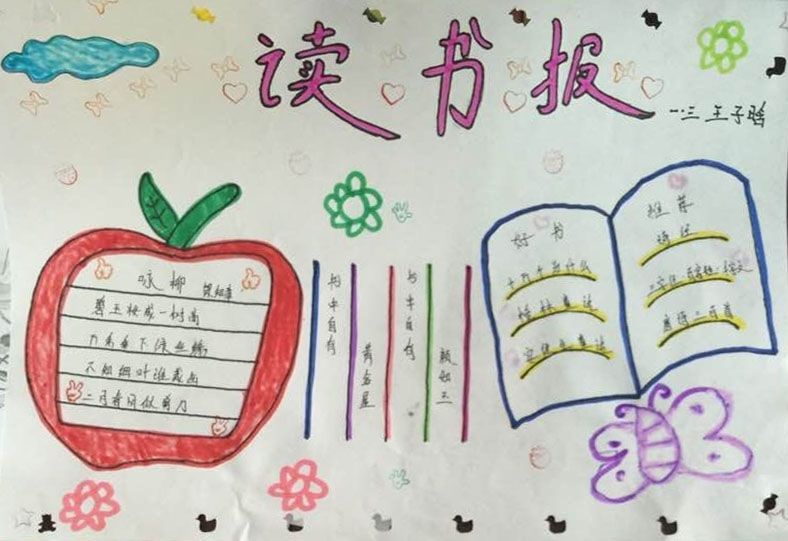 读书报
一.三 王子晗
咏柳 贺知章
碧玉妆成一树高
万条垂下绿丝绦
不知细叶谁裁出
二月春风似剪刀
书中自有
黄金屋
书中自有
颜如玉
好书
十万个为什么
格林童话
安徒生童话
推荐
三字经·百家姓·千字文
唐诗三百首